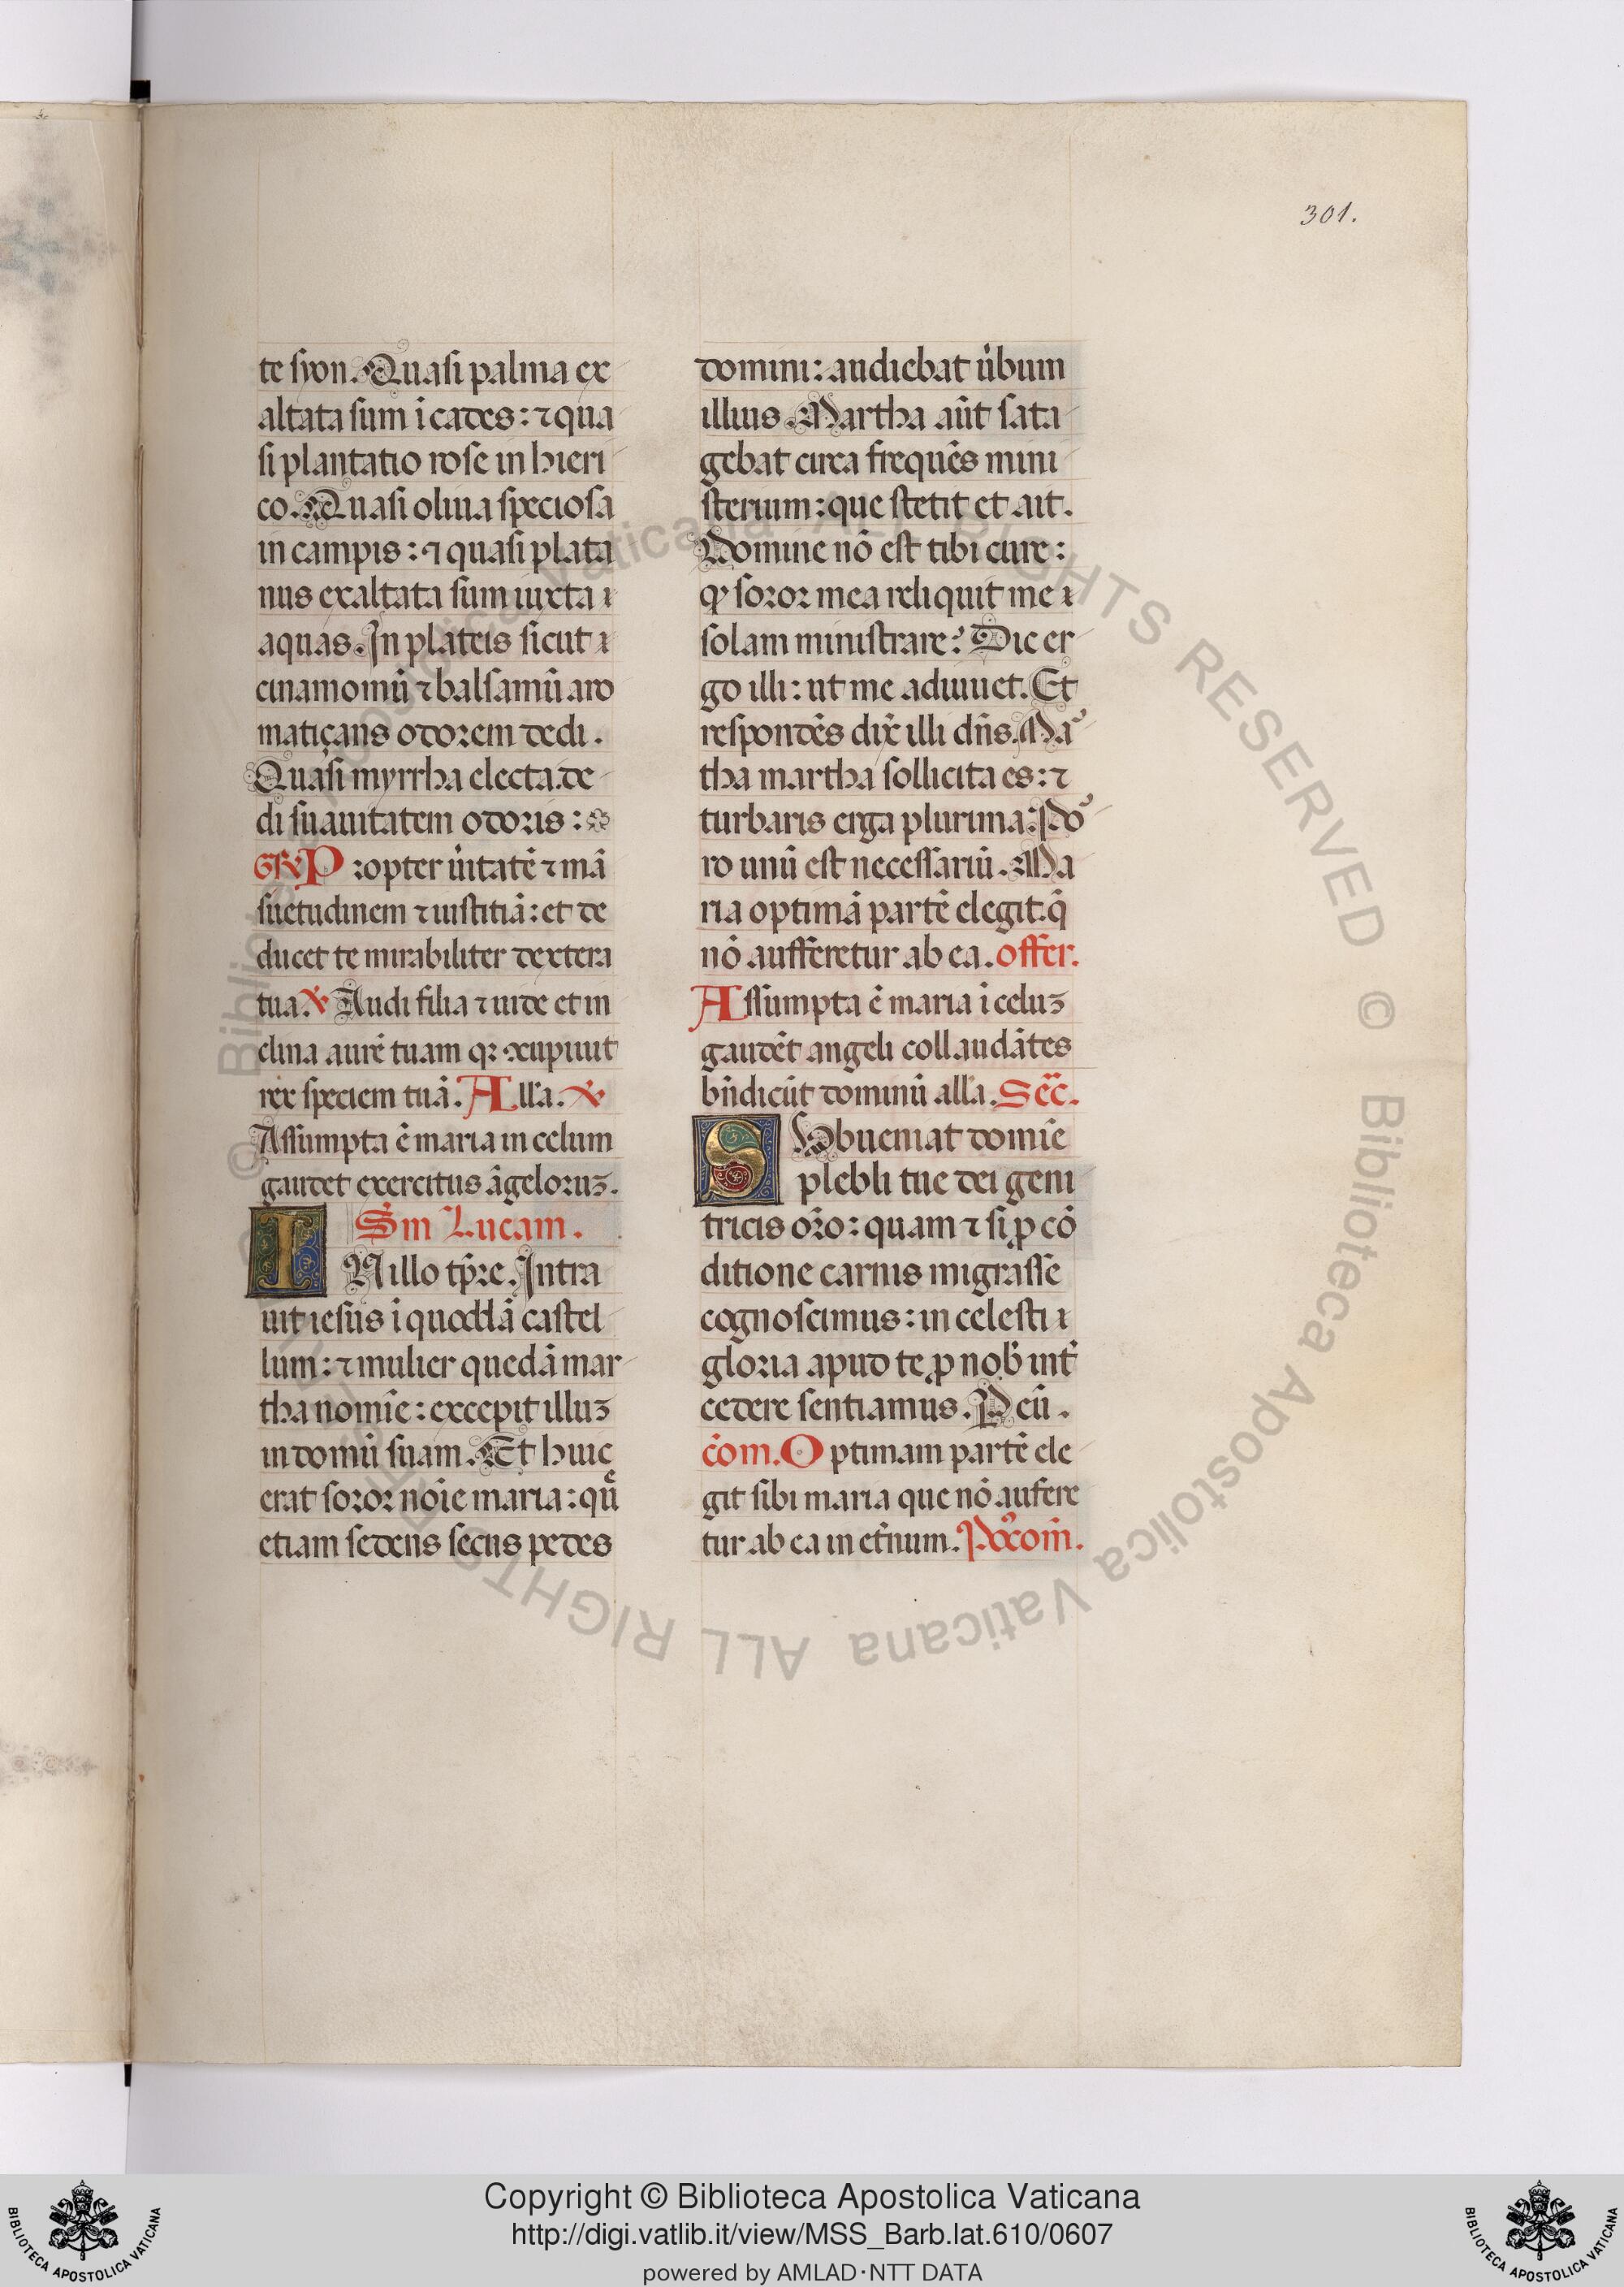 301.
te syon. Quasi palma ex
altata sum ī cades: ⁊ qua
si plantatio rose in hieri
co. Quasi oliua speciosa
in campis: ⁊ quasi plata
nus exaltata sum iuxta
aquas. In plateis sicut
cinamomū ⁊ balsamū aro
matiçans odorem dedi.
Quasi myrrha electa. de
di suauitatem odoris:
Propter ũitatē ⁊ mā
suetudinem ⁊ iustitiā: et de
ducet te mirabiliter dextera
tua. ℣ Audi filia ⁊ uide et in
clina aurē tuam qꝛ ↄcupiuit
rex speciem tuā. Alla. ℣
Assumpta ē maria in celum
gaudet exercitus āgeloruꝫ.
Sm Lucam.
IN illo tp̄re. Intra
uit iesus ī quoddā castel
lum: ⁊ mulier quedā mar
tha nomīe: excepit illuꝫ
in domū suam. Et huic
erat soror noīe maria: qū
etiam sedens secus pedes
domini: audiebat ũbum
illius. Martha aūt sata
gebat circa frequēs mini
sterium: que stetit et ait.
Domine nō est tibi cure:
ꝙ soror mea reliquit me
solam ministrare? Dic er
go illi: ut me adiuuet. Et
respondēs dix̄ illi dn̄s. Ma
tha martha sollicita es: ⁊
turbaris erga plurima: Po
ro unū est necessariū. Ma
ria optimā partē elegit. q̄
nō aufferetur ab ea. offer.
Assumpta ē maria ī celuꝫ
gaudēt angeli collaudātes
bn̄dicūt dominū alla. Sec̄.
SVbueniat domīe
plebli tue dei geni
tricis or̄o: quam ⁊ si ꝓ cō
ditione carnis migrasse
cognoscimus: in celesti
gloria apud te ꝓ nob̄ int̄
cedere sentiamus. P eū.
cōm. Optimam partē ele
git sibi maria que nō aufere
tur ab ea in et̄num. Pꝰcom̄.
© Biblioteca Apostolica Vaticana ALL RIGHTS RESERVED © Biblioteca Apostolica Vaticana ALL RIGHTS RESERVED
Copyright © Biblioteca Apostolica Vaticana
http://digi.vatlib.it/view/MSS_Barb.lat.610/0607
powered by AMLAD·NTT DATA
BIBLIOTECA APOSTOLICA VATICANA
BIBLIOTECA APOSTOLICA VATICANA